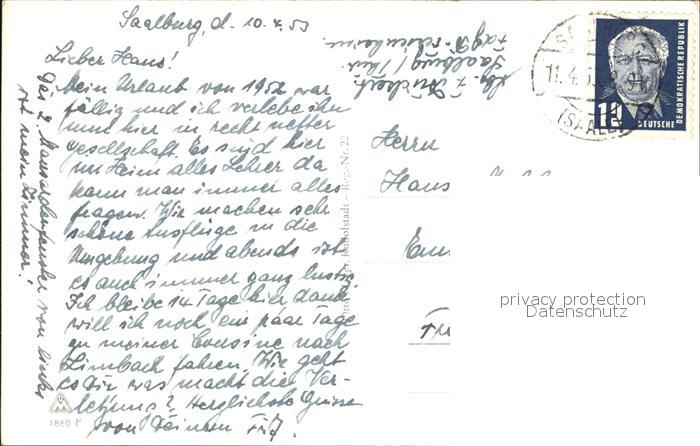 Saalburg, d. 10.4.53
Lieber Hans!
Mein Urlaub von 1952 war
fällig und ich verlebe ihn
nun hier in recht netter
Gesellschaft. Es sind hier
im Heim alles Lehrer da
kann man immer alles
fragen. Wir machen sehr
schöne Ausflüge in die
Umgebung und abends ist
es auch immer ganz lustig.
Ich bleibe 14 Tage hier dann
will ich noch ein paar Tage
zu meiner Cousine nach
Limbach fahren. Wie geht
es Dir was macht die Ver-
letzung? Herzlichste Grüsse
von Deinem
Das 2. Mansardenfenster von links
ist mein Zimmer!
1880 F
Rudolstadt - Reg.-Nr. 22
Saalburg / Thür.
Herrn
Hans
11.4.5
(SAALE)
DEUTSCHE
DEMOKRATISCHE REPUBLIK
privacy protection
Datenschutz